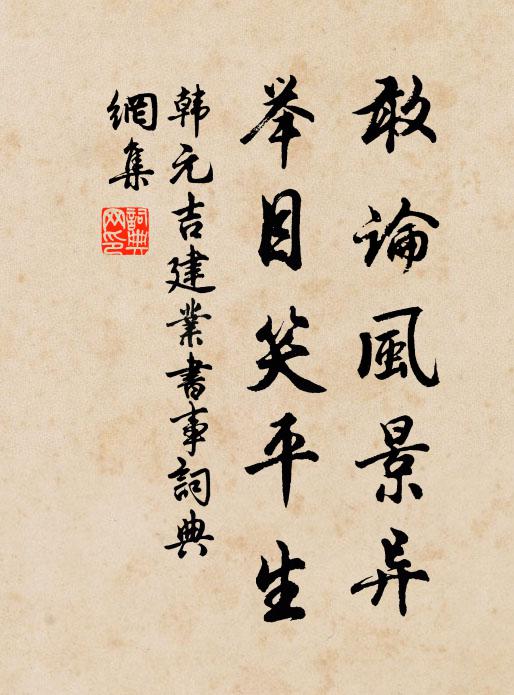 敢論風景异
举目笑平生
韩元吉建業書事詞典
網集
詞典网印